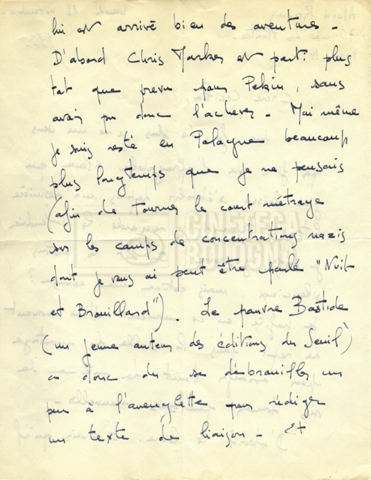 lui est arrivé bien des aventures -
D'abord Chris Marker est parti plus
tôt que prévu pour Pekin, sans
avoir pu donc l'achever - Moi même
je suis resté en Pologne beaucoup
plus longtemps que je ne pensais
(afin de tourner le court métrage
sur les camps de concentrations nazis
dont je vous ai peut être parlé "Nuit
et Brouillard"). Le pauvre Bastide
(un jeune auteur des éditions du Seuil)
a donc du se débrouiller un
peu à l'aveuglette pour rédiger
un texte de liaison - Et